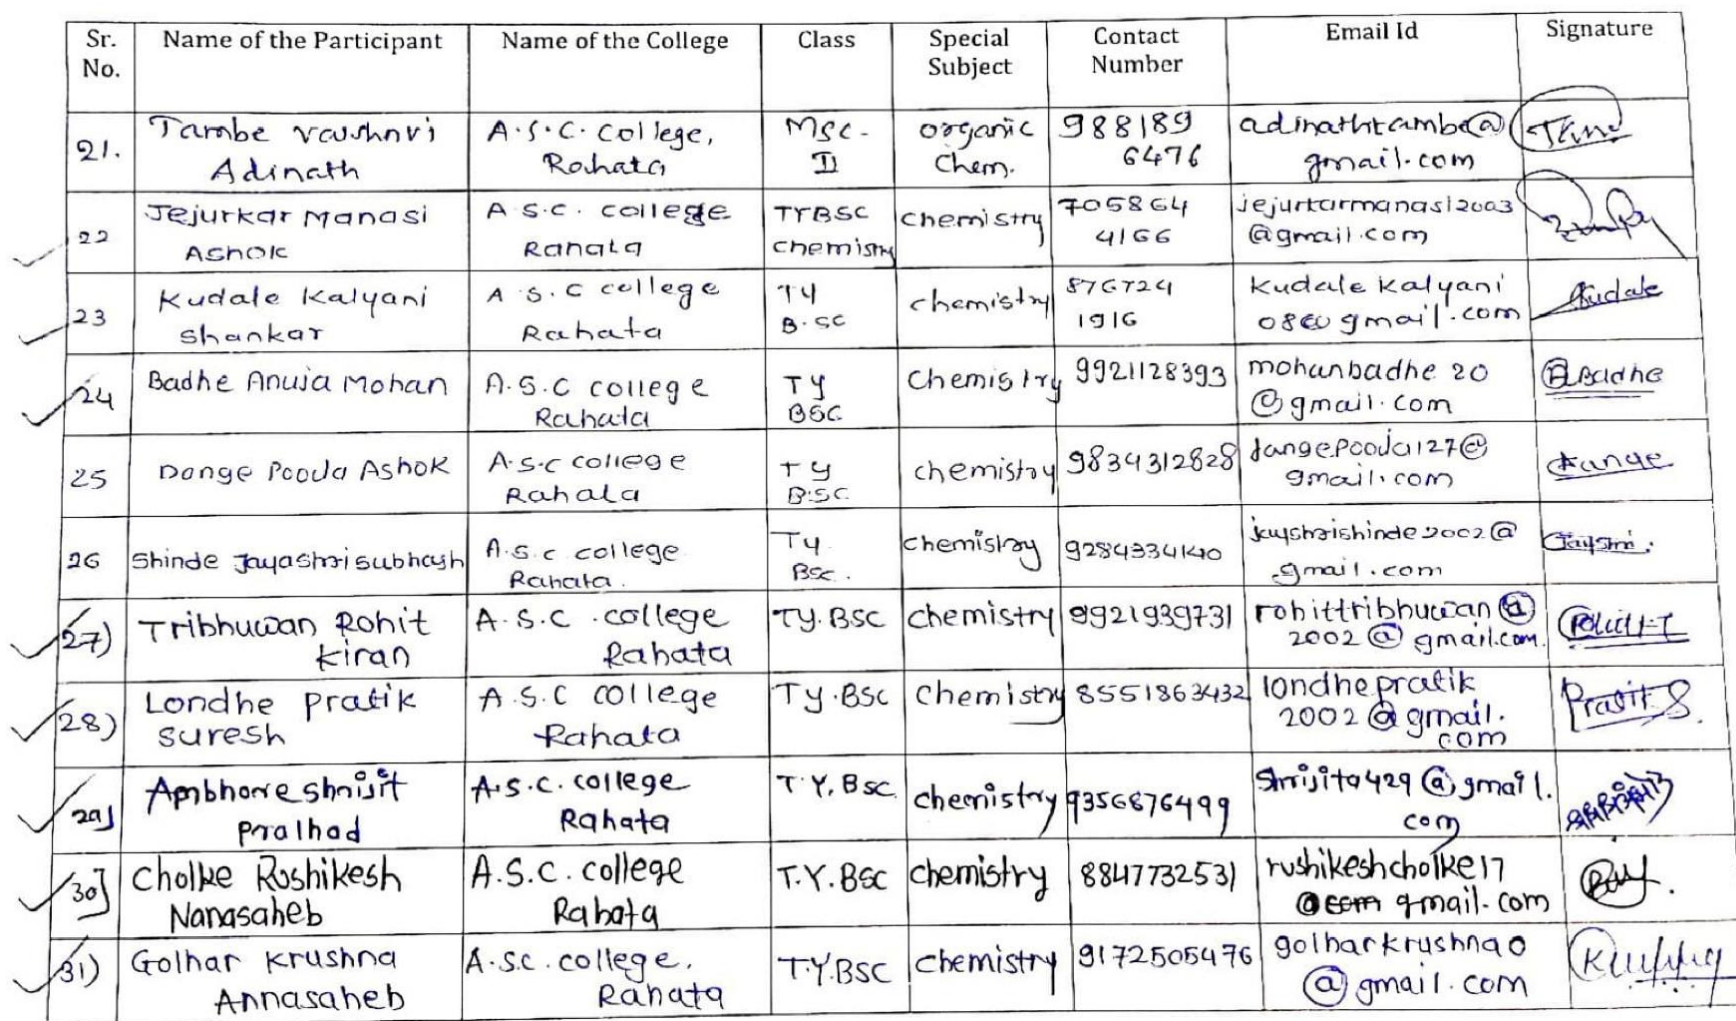 Sr. No. Name of the Participant Name of the College Class Special Subject Contact Number Email Id Signature
21. Tambe Vaishnvi Adinath A.S.C. College, Rahata MSc-II organic Chem. 988189 6476 adinathtambe@gmail.com
22 Jejurkar Manasi Ashok A S.C. college Rahata TYBSC chemistry chemistry 705864 4166 jejurkarmanasi2003@gmail.com
23 Kudale Kalyani Shankar A S.C college Rahata TY B.SC chemistry 1916 Kudale Kalyani gmail.com Kudale
24 Badhe Anuja Mohan A.S.C college Rahata TY BSC Chemistry 9921128393 mohanbadhe 20 @gmail.com Badhe
25 Dange Pooja Ashok A.S.C college Rahata TY B.SC chemistry 9834312828 dangepooja127@gmail.com dange
26 Shinde Jayashri subhash A.S.C college Rahata. TY. BSC. chemistry 9284334140 jayshrishinde2002@gmail.com Jayshri.
27) Tribhuwan Rohit kiran A.S.C. college Rahata TY.BSC chemistry 9921939731 rohittribhuwan@ 2002@gmail.com
28) Londhe Pratik Suresh A.S.C college Rahata TY.BSC chemistry 8551863432 londhepratik 2002@gmail.com Pratik S.
29] Ambhore shrijit pralhad A.S.C. college Rahata T.Y.Bsc. chemistry 9356876499 shrijita429@gmail.com
30] Cholke Rushikesh Nanasaheb A.S.C. college Rahata T.Y.BSC chemistry 8847732531 rushikeshcholke17 @ gmail.com
31) Golhar Krushna Annasaheb A.S.C. college. Rahata T.Y.BSC chemistry 9172505476 golharkrushna0 @gmail.com